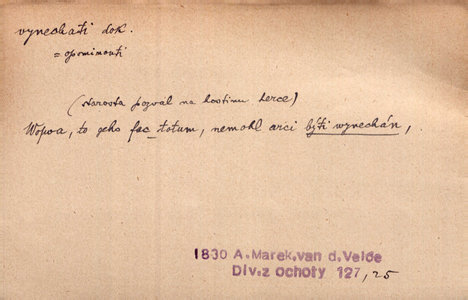 vynechati dok.
= opominouti
(starosta pozval na hostinu herce)
Wopwa, to jeho fac_totum, nemohl arci býti wynechán,.
1830 A.Marek,van d.Velde
Div.z ochoty 127,25